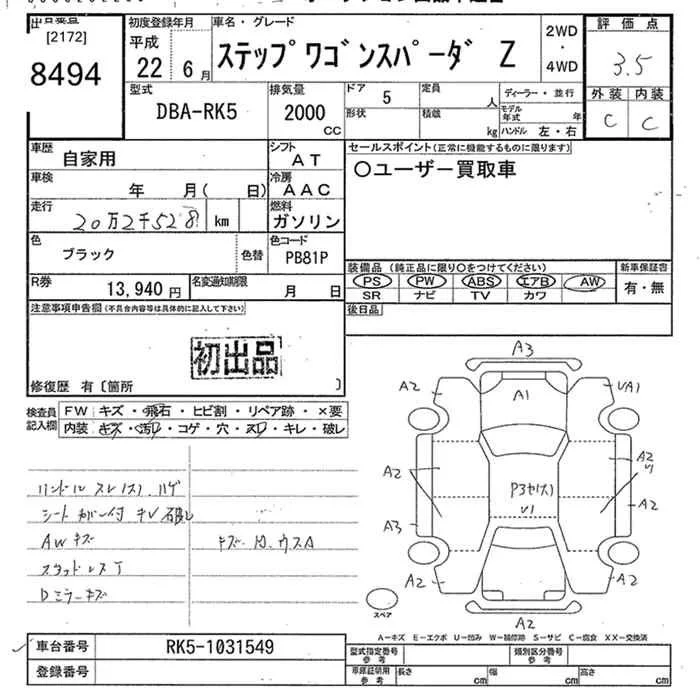 [2172]
8494
初度登録年月
平成
22 6月
車名・グレード
ステップワゴンスパーダ Z
2WD
・
4WD
評価点
3.5
外装 内装
C C
型式
DBA-RK5
排気量
2000
CC
ドア 5
形状
定員 人
積載 kg
ディーラー・並行
モデル年式 年
ハンドル 左・右
車歴
自家用
シフト
AT
車検
年 月( 日)
冷房
AAC
走行
20万2千528 km
燃料
ガソリン
色
ブラック
色替
色コード
PB81P
R券
13,940 円
名変通知期限
月 日
セールスポイント(正常に機能するものに限ります)
○ユーザー買取車
装備品 (純正品に限り○をつけてください)
PS PW ABS エアB AW
SR ナビ TV カワ
新車保証書
有・無
後日品
注意事項申告欄(不具合内容等は具体的に記入して下さい)
初出品
修復歴 有〔箇所 〕
検査員記入欄
FW キズ・飛石・ヒビ割・リペア跡・×要
内装 キズ・汚れ・コゲ・穴・スレ・キレ・破レ
ハンドル スレ(ス)、ハゲ
シート カバー付 キレ 破レ
AW キズ
スタッドレスT
Dミラーキズ
A3
A2
A1
VA1
A2
A2
A2
A3
P3ヤ(ス)
V1
A2
A2
A2
A2
スペア
A−キズ E−エクボ U−凹み W−補修跡 S−サビ C−腐食 XX−交換済
車台番号
RK5-1031549
登録番号
型式指定番号
参考
類別区分番号
参考
車庫証明用
参考
長さ cm
幅 cm
高さ cm